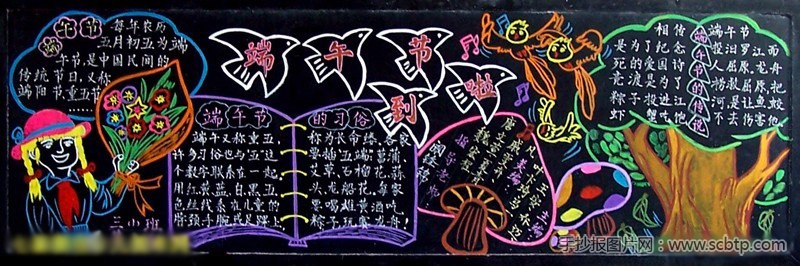 端午节 每年农历
五月初五为端
午节,是中国民间的
传统节日,又称
端阳节、重五节
……
端午节到啦
端午节的习俗
端午又称重五,
许多习俗也与“五”这
个数字联系在一起.
用红黄蓝白黑五
色丝线系在儿童的
脖颈手腕或足踝上,
称为长命缕,各家
要插“五端”:菖蒲,
艾草,石榴花,蒜
头,龙船花,每家
要喝雄黄酒吃
粽子,玩赛龙舟!
端午节的传说
相传 端午节
是为了纪念 投汨罗江而
死的爱国诗 人屈原,龙舟
竞渡是为了 捞救屈原,把
粽子投进江 河是让鱼蛟
虾蟹吃他 不去伤害他
手抄报图片网:www.scbtp.com